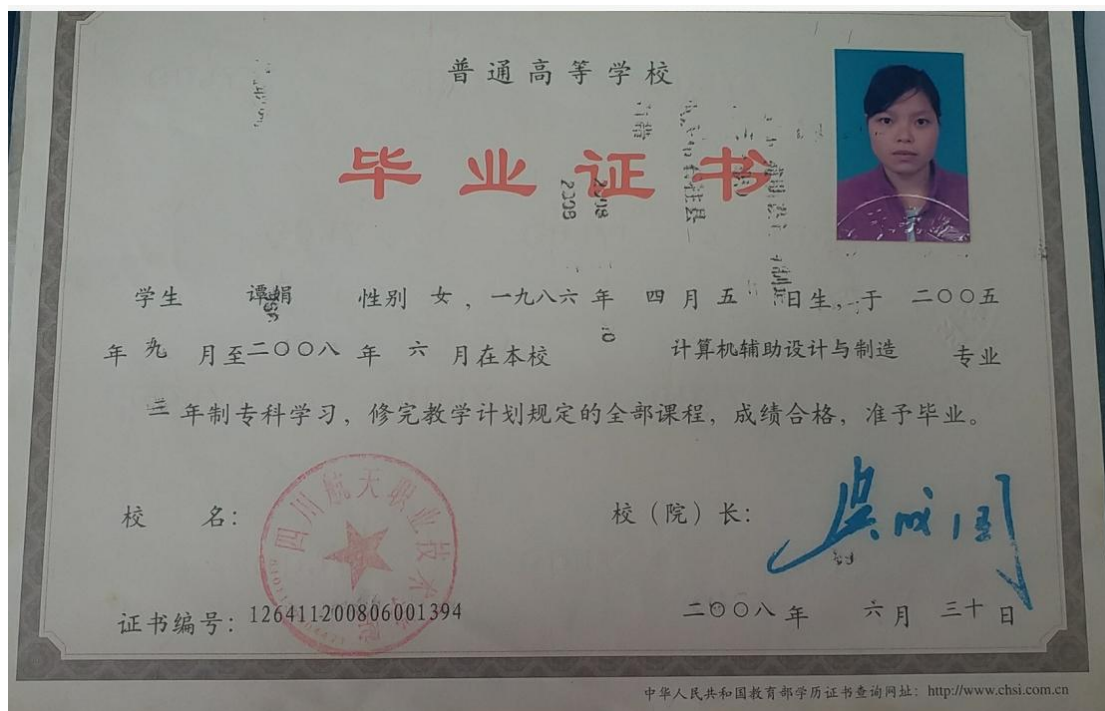 普通高等学校
毕业证书
学生 谭娟 性别 女，一九八六 年 四 月 五 日生，于 二〇〇五
年 九 月至二〇〇八 年 六 月在本校 计算机辅助设计与制造 专业
三 年制专科学习，修完教学计划规定的全部课程，成绩合格，准予毕业。
校 名： 校（院）长：
四川航天职业技术学院
证书编号：126411200806001394 二〇〇八 年 六 月 三十 日
中华人民共和国教育部学历证书查询网址：http://www.chsi.com.cn